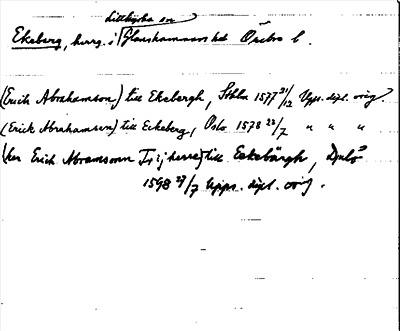 Lillkyrka sn
Ekeberg, herrg. i Glanshammars hd Örebro l.
(Erich Abrahamson,) till Ekebergh, Sthlm 1577 21/12 Upps. dipl. orig.
(Erick Abrahamsen) till Eckeberg, Oslo 1578 22/7 " " "
(her Erich Abramsonn till Eekebärgh, Djulö
1598 27/7 Upps. dipl. orig.